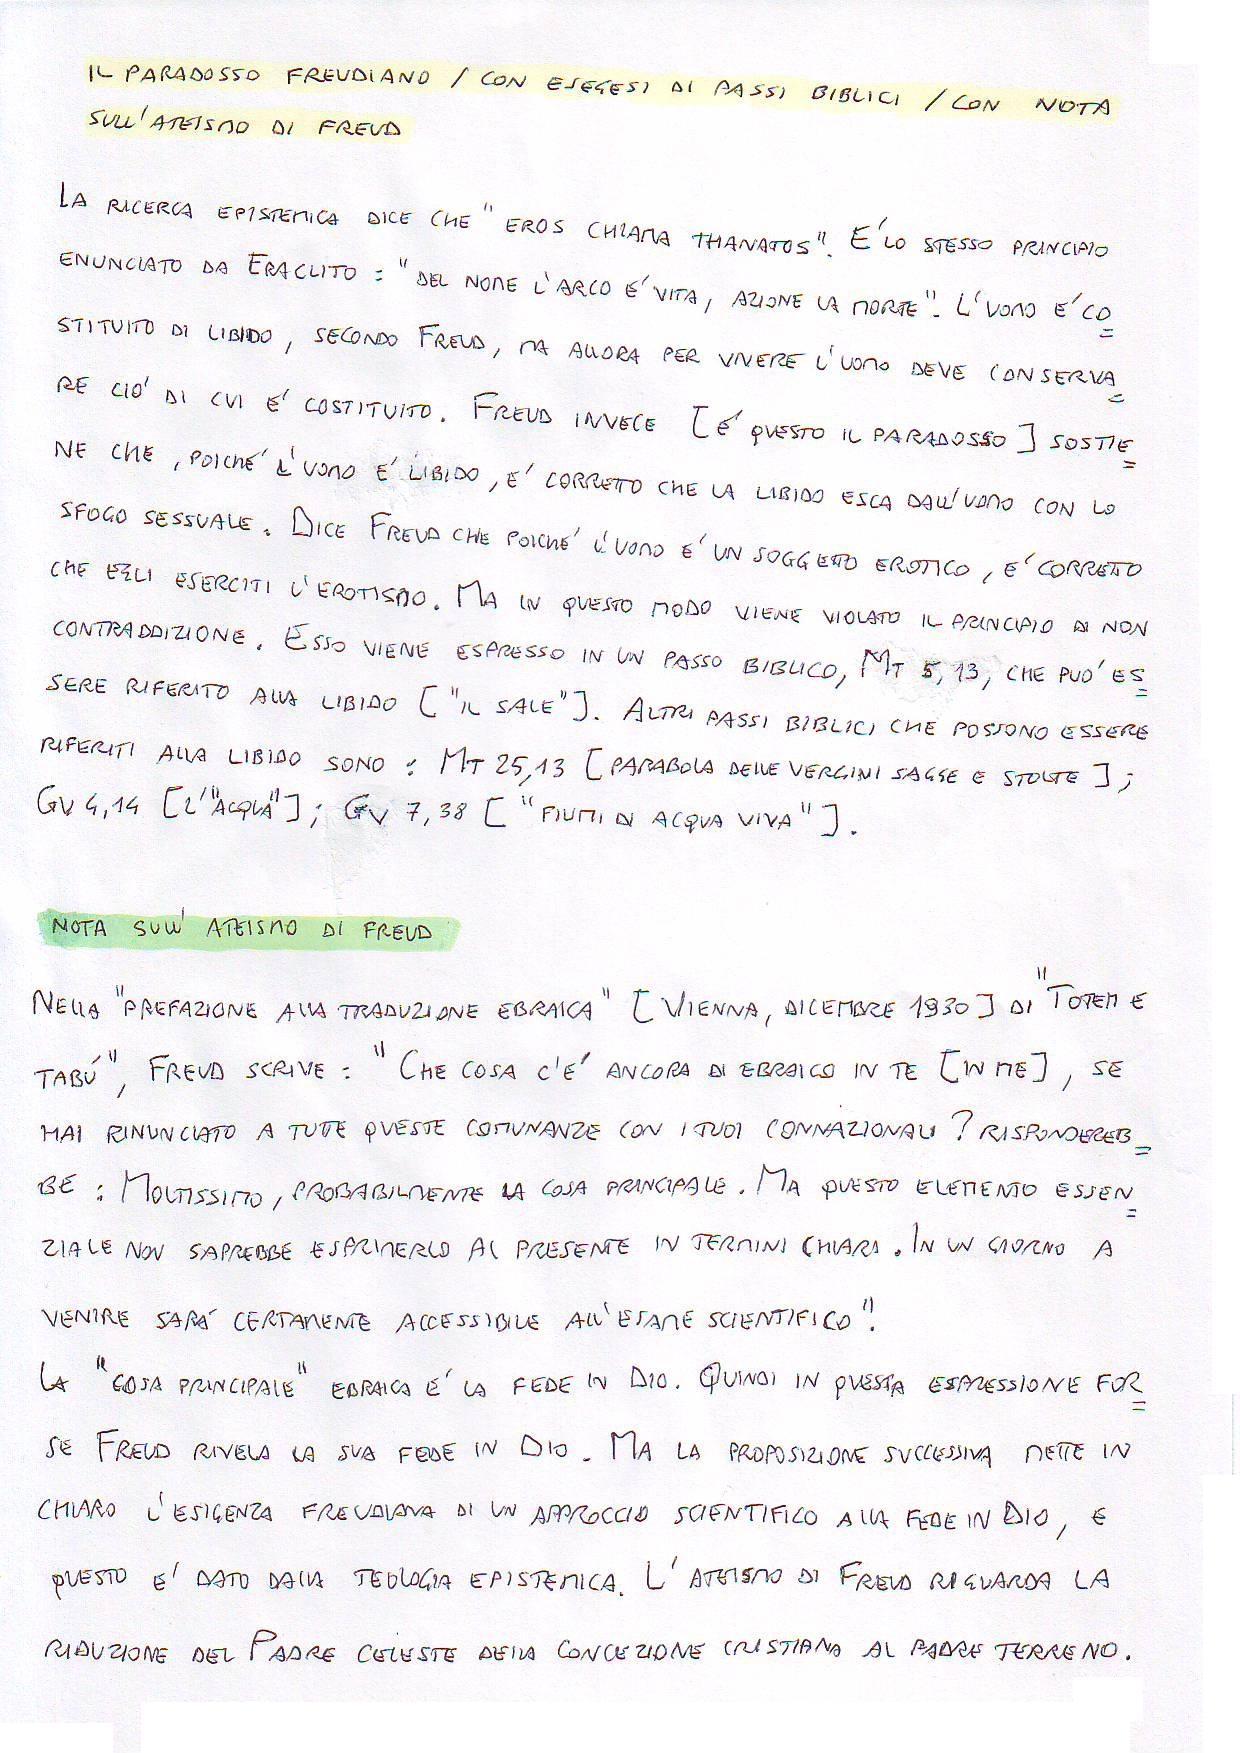 IL PARADOSSO FREUDIANO / CON ESEGESI DI PASSI BIBLICI / CON NOTA
SULL'ATEISMO DI FREUD
LA RICERCA EPISTEMICA DICE CHE "EROS CHIAMA THANATOS". E' LO STESSO PRINCIPIO
ENUNCIATO DA ERACLITO : "DEL NOME L'ARCO E' VITA, AZIONE LA MORTE". L'UOMO E' CO=
STITUITO DI LIBIDO, SECONDO FREUD, MA ALLORA PER VIVERE L'UOMO DEVE CONSERVA=
RE CIO' DI CUI E' COSTITUITO. FREUD INVECE [E' QUESTO IL PARADOSSO] SOSTIE=
NE CHE, POICHE' L'UOMO E' LIBIDO, E' CORRETTO CHE LA LIBIDO ESCA DALL'UOMO CON LO
SFOGO SESSUALE. DICE FREUD CHE POICHE' L'UOMO E' UN SOGGETTO EROTICO, E' CORRETTO
CHE EGLI ESERCITI L'EROTISMO. MA IN QUESTO MODO VIENE VIOLATO IL PRINCIPIO DI NON
CONTRADDIZIONE. ESSO VIENE ESPRESSO IN UN PASSO BIBLICO, MT 5,13, CHE PUO' ES=
SERE RIFERITO ALLA LIBIDO ["IL SALE"]. ALTRI PASSI BIBLICI CHE POSSONO ESSERE
RIFERITI ALLA LIBIDO SONO : MT 25,13 [PARABOLA DELLE VERGINI SAGGE E STOLTE] ;
GV 4,14 [L'"ACQUA"] ; GV 7,38 ["FIUMI DI ACQUA VIVA"].
NOTA SULL'ATEISMO DI FREUD
NELLA "PREFAZIONE ALLA TRADUZIONE EBRAICA" [VIENNA, DICEMBRE 1930] DI "TOTEM E
TABU'", FREUD SCRIVE : "CHE COSA C'E' ANCORA DI EBRAICO IN TE [IN ME], SE
HAI RINUNCIATO A TUTTE QUESTE COMUNANZE CON I TUOI CONNAZIONALI ? RISPONDEREB=
BE : MOLTISSIMO, PROBABILMENTE LA COSA PRINCIPALE. MA QUESTO ELEMENTO ESSEN=
ZIALE NON SAPREBBE ESPRIMERLO AL PRESENTE IN TERMINI CHIARI. IN UN GIORNO A
VENIRE SARA' CERTAMENTE ACCESSIBILE ALL'ESAME SCIENTIFICO".
LA "COSA PRINCIPALE" EBRAICA E' LA FEDE IN DIO. QUINDI IN QUESTA ESPRESSIONE FOR=
SE FREUD RIVELA LA SUA FEDE IN DIO. MA LA PROPOSIZIONE SUCCESSIVA METTE IN
CHIARO L'ESIGENZA FREUDIANA DI UN APPROCCIO SCIENTIFICO ALLA FEDE IN DIO, E
QUESTO E' DATO DALLA TEOLOGIA EPISTEMICA. L'ATEISMO DI FREUD RIGUARDA LA
RIDUZIONE DEL PADRE CELESTE DELLA CONCEZIONE CRISTIANA AL PADRE TERRENO.